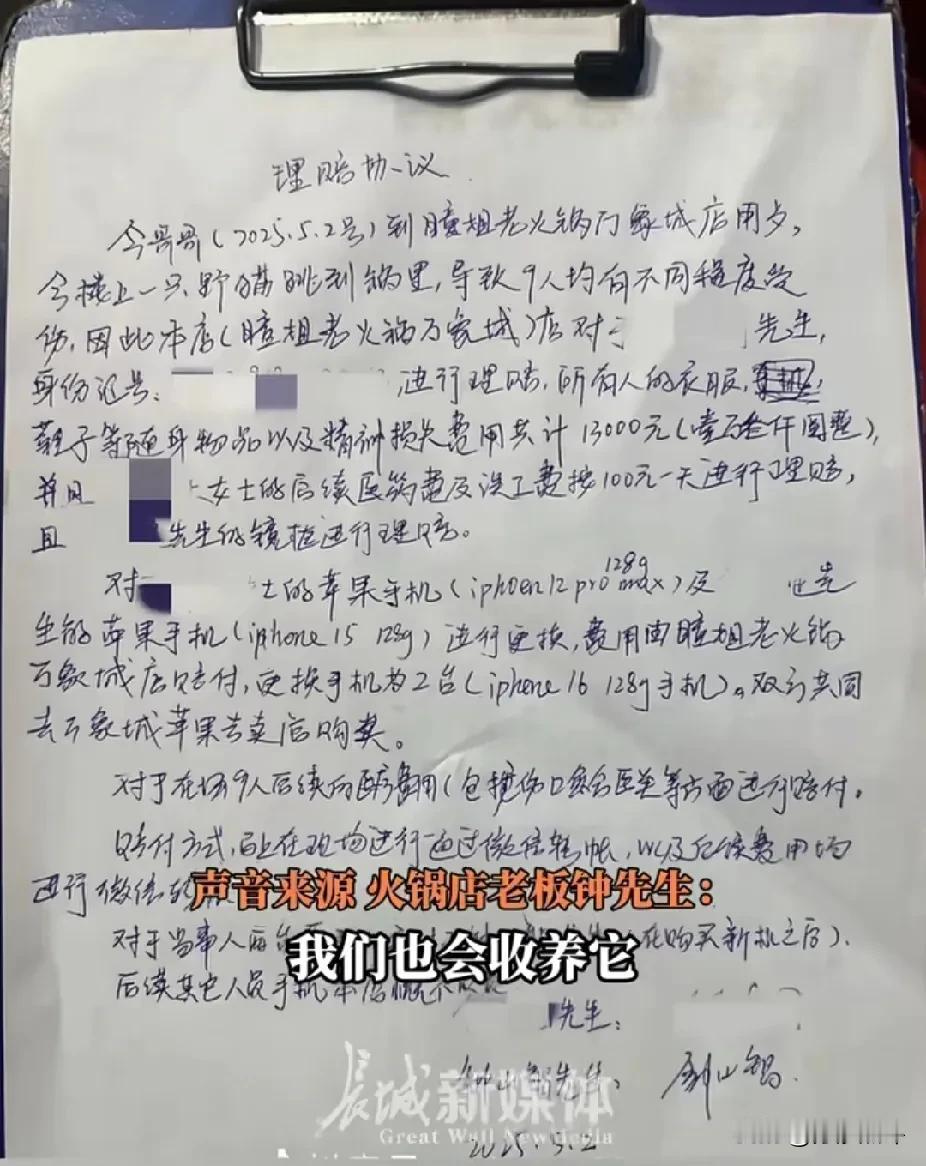 理赔协议
今哥哥(2025.5.2号)到瞳姐老火锅万象城店用歺,
今楼上一只野猫跳到锅里,导致9人均有不同程度受
伤,因此本店(瞳姐老火锅万象城)店对于 先生,
身份证号: 进行理赔,所有人的衣服,
鞋子等随身物品以及精神损失费用共计13000元(壹万叁仟圆整),
并且 女士的后续医药费及误工费按100元一天进行理赔,
且 先生的镜框进行理赔。
对 士的苹果手机(iphoen12pro max 128g)及 先
生的苹果手机(iphone 15 128g)进行更换,费用由瞳姐老火锅
万象城店赔付,更换手机为2台(iphone 16 128g手机)。双方共同
去万象城苹果专卖店购买。
对于在场9人后续的 费用(包括伤口 医美等方面进行赔付。
赔付方式,马上在现场进行通过微信转帐,以及后续费用均
进行微信转
声音来源 火锅店老板钟先生:
对于当事人两台 在购买新机之后)。
我们也会收养它
后续其它人员手机本店概不
先生:
先生:
2025.5.2
长城新媒体
Great Wall New Media